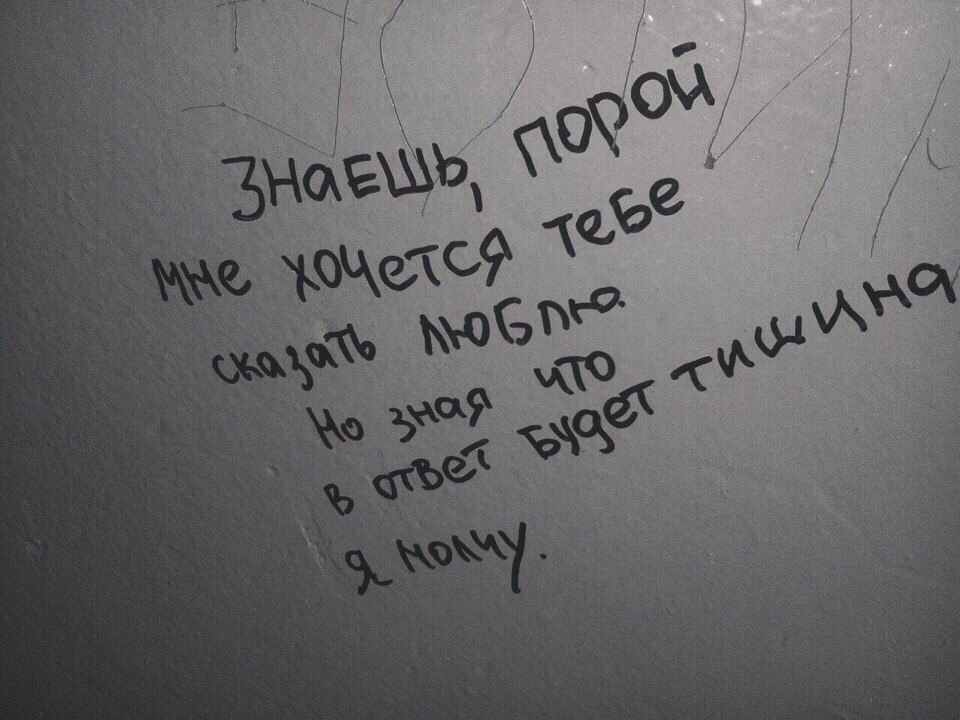 Знаешь, порой
мне хочется тебе
сказать люблю.
Но зная что
в ответ будет тишина
я молчу.